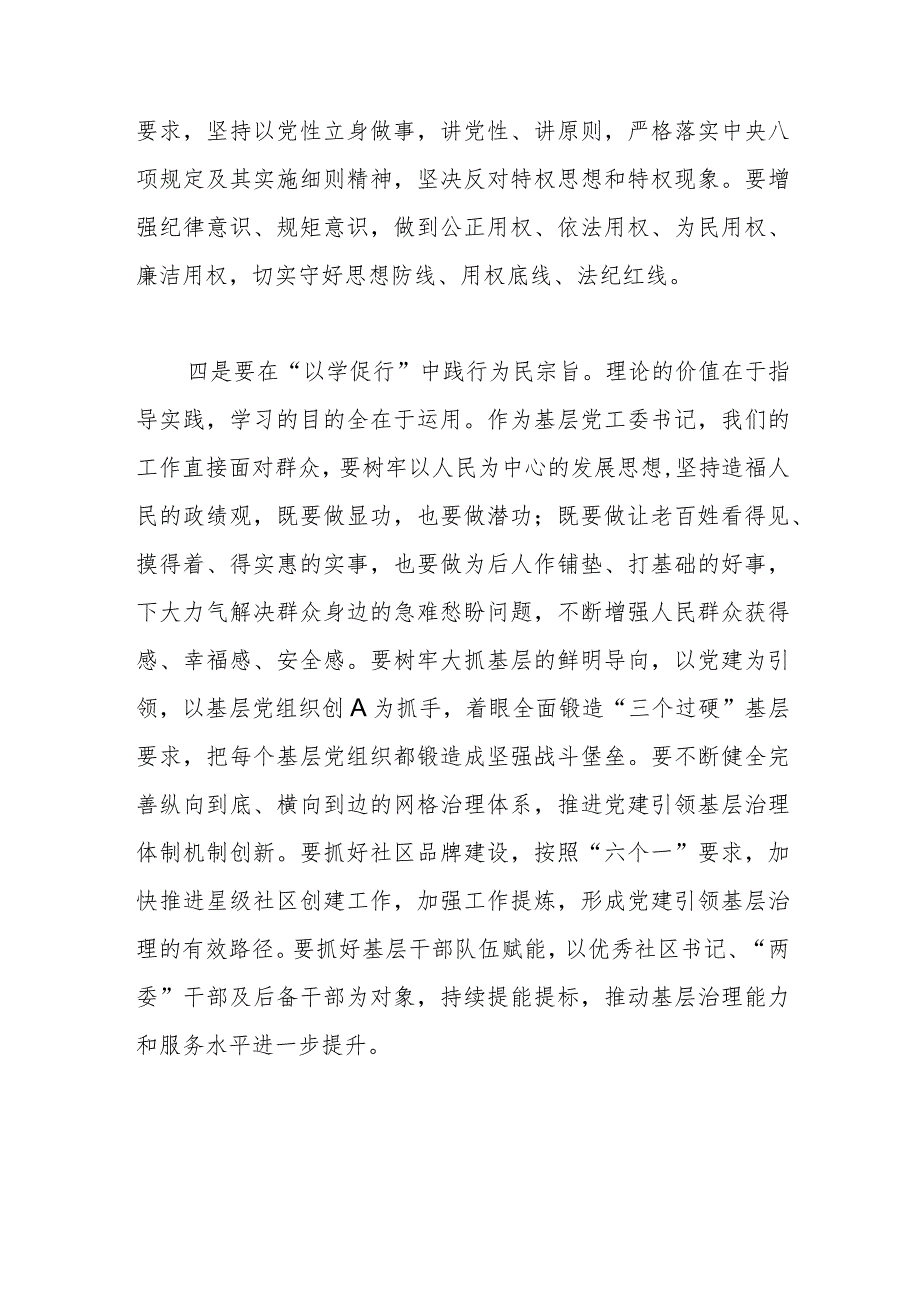 要求，坚持以党性立身做事，讲党性、讲原则，严格落实中央八
项规定及其实施细则精神，坚决反对特权思想和特权现象。要增
强纪律意识、规矩意识，做到公正用权、依法用权、为民用权、
廉洁用权，切实守好思想防线、用权底线、法纪红线。
四是要在“以学促行”中践行为民宗旨。理论的价值在于指
导实践，学习的目的全在于运用。作为基层党工委书记，我们的
工作直接面对群众，要树牢以人民为中心的发展思想,坚持造福人
民的政绩观，既要做显功，也要做潜功；既要做让老百姓看得见、
摸得着、得实惠的实事，也要做为后人作铺垫、打基础的好事，
下大力气解决群众身边的急难愁盼问题，不断增强人民群众获得
感、幸福感、安全感。要树牢大抓基层的鲜明导向，以党建为引
领，以基层党组织创A为抓手，着眼全面锻造“三个过硬”基层
要求，把每个基层党组织都锻造成坚强战斗堡垒。要不断健全完
善纵向到底、横向到边的网格治理体系，推进党建引领基层治理
体制机制创新。要抓好社区品牌建设，按照“六个一”要求，加
快推进星级社区创建工作，加强工作提炼，形成党建引领基层治
理的有效路径。要抓好基层干部队伍赋能，以优秀社区书记、“两
委”干部及后备干部为对象，持续提能提标，推动基层治理能力
和服务水平进一步提升。